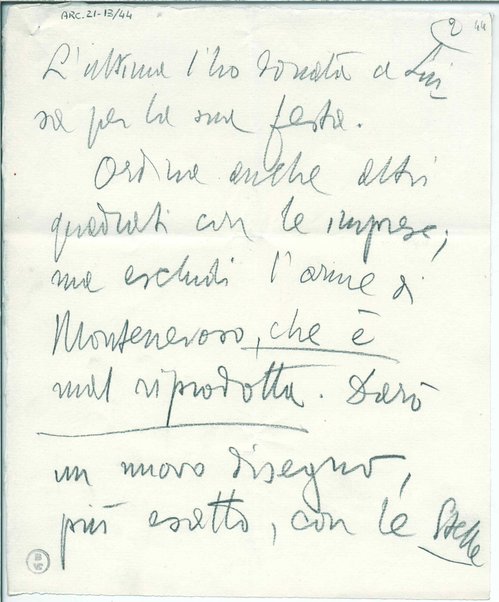 ARC.21-13/44
2
44
L'ultima l'ho donata a Lui-
sa per la sua festa.
Ordina anche altri
quadrati con le imprese;
ma escludi l'arme di
Montenevoso, che è
mal riprodotta. Darò
un nuovo disegno,
più esatto, con le Stelle